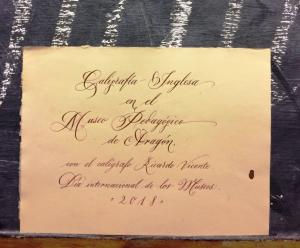 Caligrafía Inglesa
en el
Museo Pedagógico
de Aragón.
con el calígrafo Ricardo Vicente
Día internacional de los Museos.
· 2018 ·